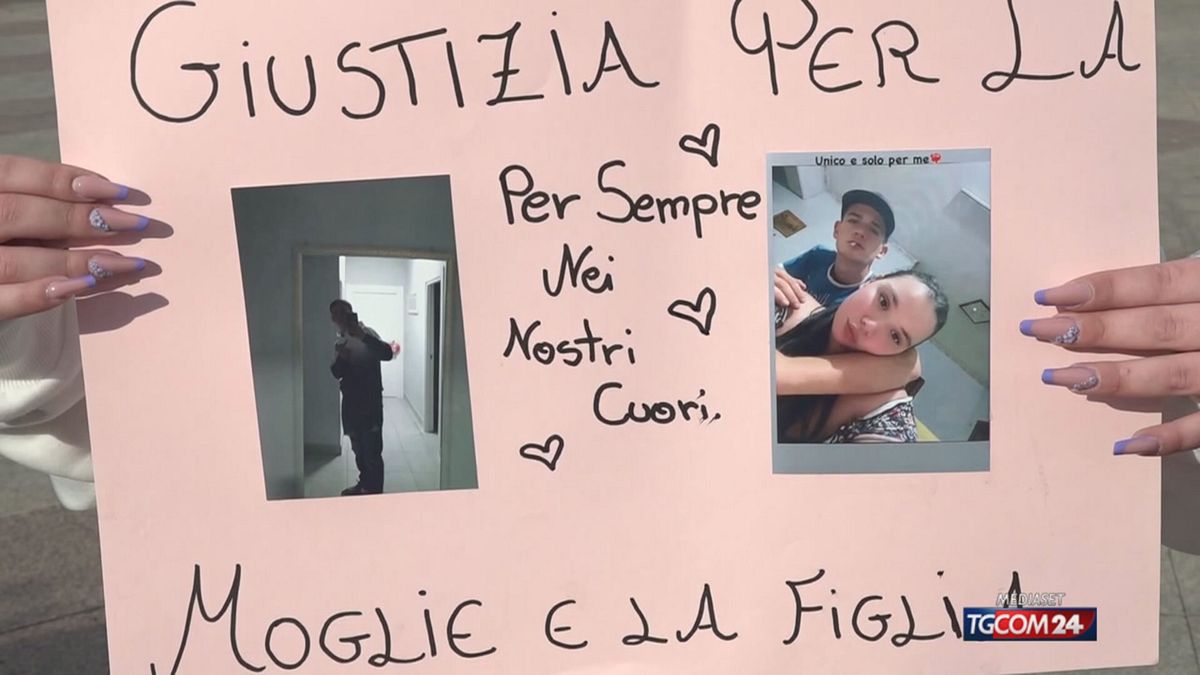 GIUSTIZIA PER LA
Per Sempre
Nei
Nostri
Cuori.
Unico e solo per me
MOGLIE E LA FIGLIA
MEDIASET
TGCOM24